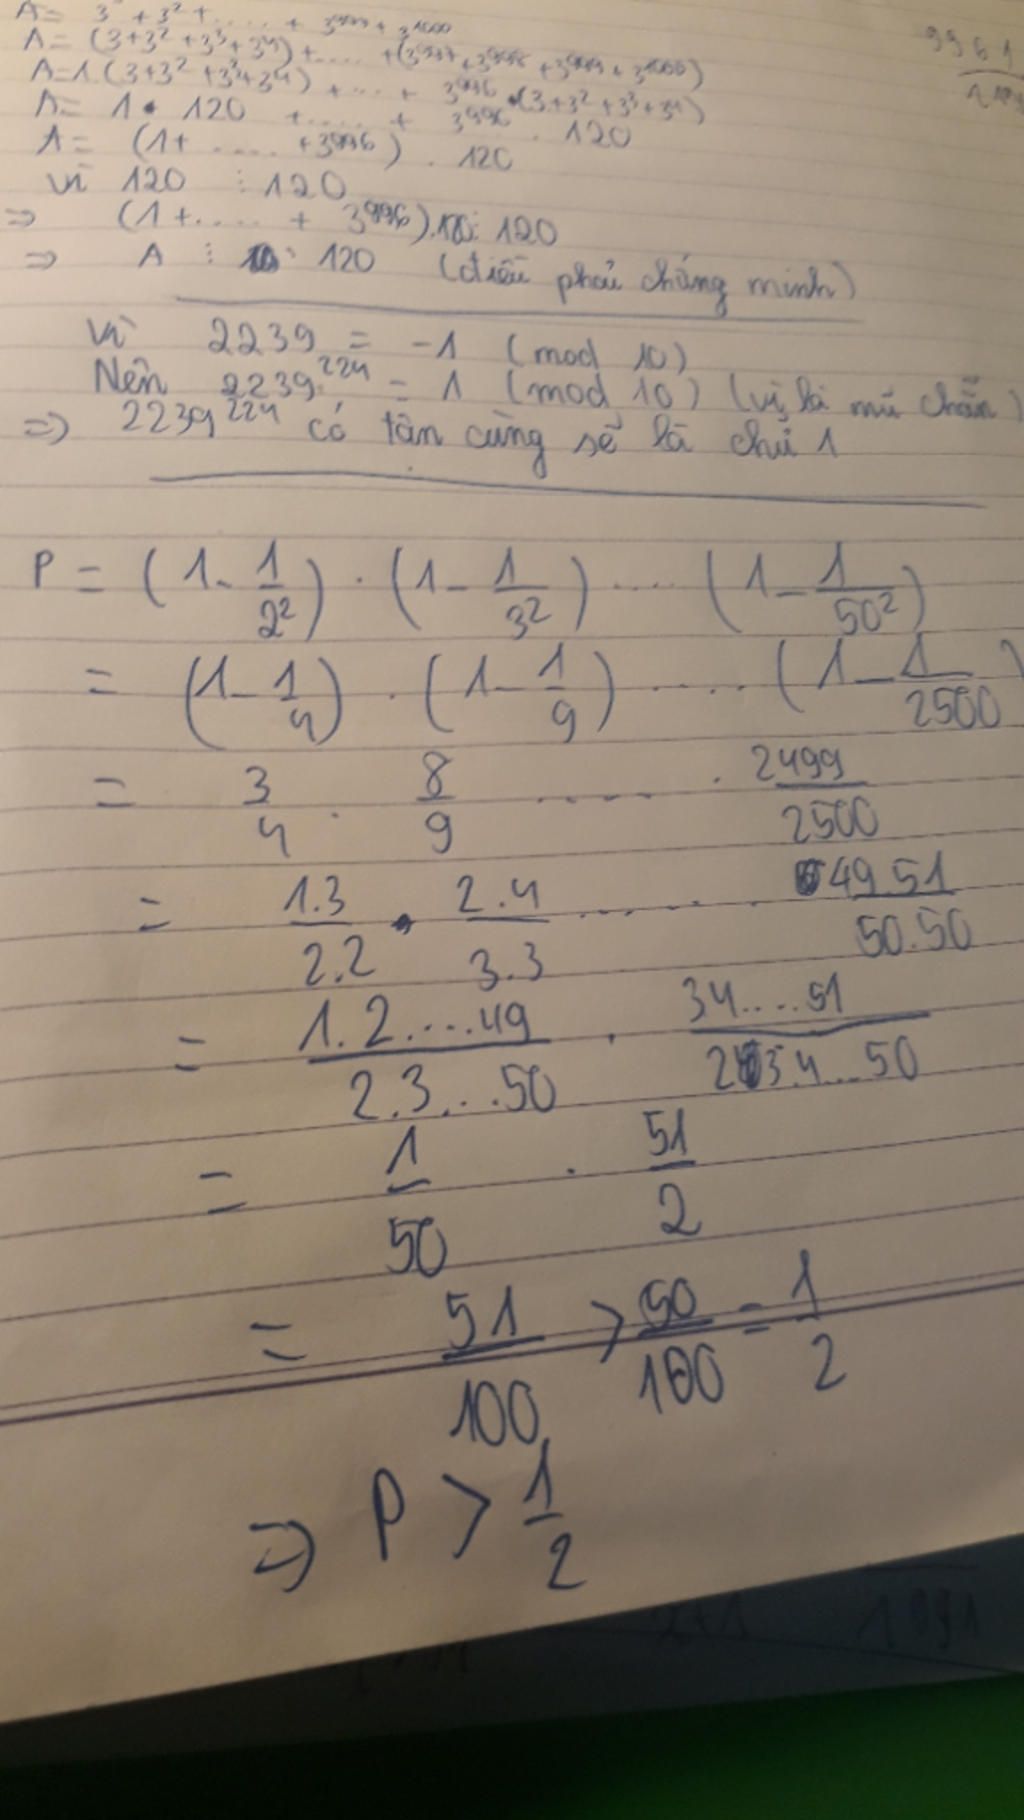 A = 3 + 3² + ..... + 3⁹⁹⁹ + 3¹⁰⁰⁰
A = (3+3²+3³+3⁴) + ..... + (3⁹⁹⁷+3⁹⁹⁸+3⁹⁹⁹+3¹⁰⁰⁰)
A=1.(3+3²+3³+3⁴) + ... + 3⁹⁹⁶.(3+3²+3³+3⁴)
A = 1 . 120 + ..... + 3⁹⁹⁶ . 120
A = (1+ ..... +3⁹⁹⁶) . 120
Vì 120 ⋮ 120
⇒ (1+..... + 3⁹⁹⁶).120 ⋮ 120
⇒ A ⋮ 120 (điều phải chứng minh)
Vì 2239 = -1 (mod 10)
Nên 2239²²⁴ = 1 (mod 10) (vì là mũ chẵn)
⇒ 2239²²⁴ có tận cùng sẽ là chữ 1
P = (1 - 1/2²) . (1 - 1/3²) .... (1 - 1/50²)
= (1 - 1/4) . (1 - 1/9) ..... (1 - 1/2500)
= 3/4 . 8/9 ....... 2499/2500
= 1.3/2.2 . 2.4/3.3 ....... 49.51/50.50
= 1.2....49/2.3...50 . 34....51/2.3.4...50
= 1/50 . 51/2
= 51/100 > 50/100 = 1/2
⇒ P > 1/2